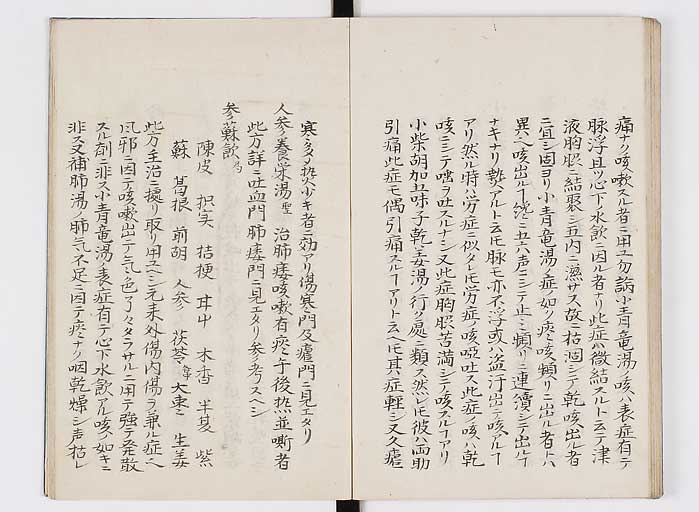 痛ナク咳嗽スル者ニ用ユ勿論小青竜湯ノ咳ハ表症有テ
脉浮且ツ心下水飲ニ因ル者ナリ此症ハ微結スルト云テ津
液胸脇ニ結聚シ五内ニ濕サス故ニ枯涸シテ乾咳出ル者
ニ宜シ固ヨリ小青竜湯ノ症如ク痰咳頻リニ出ル者トハ
異ヘ咳出ルヿ纔ニ五六声ニシテ止ミ頻リニ連續シテ出ルヿ
ナキナリ熱アルト云ヘ𪜈脉モ亦不浮或ハ盗汗出テ咳アルヿ
アリ然ル時ハ労症ニ似タレ𪜈労症ノ咳ハ啞吐ス此症ノ咳ハ乾
咳ニシテ嘔ヲ吐スルナシ又此症胸脇苦満シテ咳スルヿアリ
小柴胡加五味子乾姜湯ノ行ク處ニ類ス然レ𪜈彼ハ両助
引痛此症モ偶引痛スルヿアリト云ヘ𪜈其ハ症輕シ又久瘧
寒多ク热少キ者ニ効アリ傷寒門及瘧門ニ見エタリ
人参養栄湯 聖 治肺痿咳嗽有痰午後热並嘶者
此方詳ニ吐血門肺痿門ニ見エタリ参考スヘシ
参蘇飲
陳皮 枳実 桔梗 甘中 木香 半夏 紫
蘇 葛根 前胡 人参 茯苓 大棗 生姜
此方主治ニ據リ取リ用ユヘシ元来外傷内傷ヲ兼ル症ヘ
風邪ニ因テ咳嗽出テ气色了々タラサルニ用テ強テ発散
スル剤ニ非ス小青竜湯ノ表症有テ心下水飲アル咳ノ如キニ
非ス又補肺湯ノ肺气不足ニ因テ痰ナク咽乾燥シ声枯レ